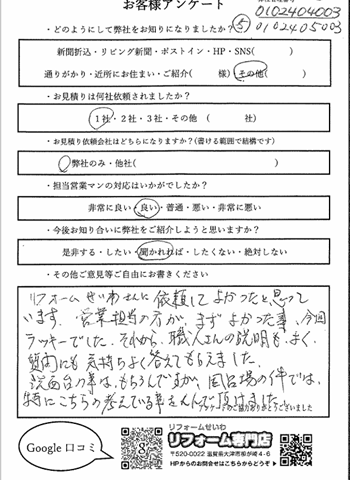 お客様アンケート
0102404003
0102405003
・どのようにして弊社をお知りになりましたか?
新聞折込・リビング新聞・ポストイン・HP・SNS( )
通りがかり・近所にお住まい・ご紹介( 様)その他( )
・お見積りは何社依頼されましたか?
1社・2社・3社・その他 ( 社)
・お見積り依頼会社はどちらになりますか?(書ける範囲で結構です)
弊社のみ・他社( )
・担当営業マンの対応はいかがでしたか?
非常に良い・良い・普通・悪い・非常に悪い
・今後お知り合いに弊社をご紹介しようと思いますか?
是非する・したい・聞かれれば・したくない・絶対しない
・その他ご意見等ご自由にお書きください
リフォームせいわさんに依頼してよかったと思って
います。営業担当の方が、まずよかった事、今回
ラッキーでした。それから、職人さんの説明も、よく、
質問にも気持ちよく答えてもらえました。
洗面台の事は、もちろんですが、風呂場の件では、
特にこちらの考えている事をくんで頂けました。
アンケートのご協力ありがとうございました
Google 口コミ
g
リフォームせいわ
リフォーム専門店
〒520-0022 滋賀県大津市柳が崎4-6
HPからのお問合せはこちらからどうぞ